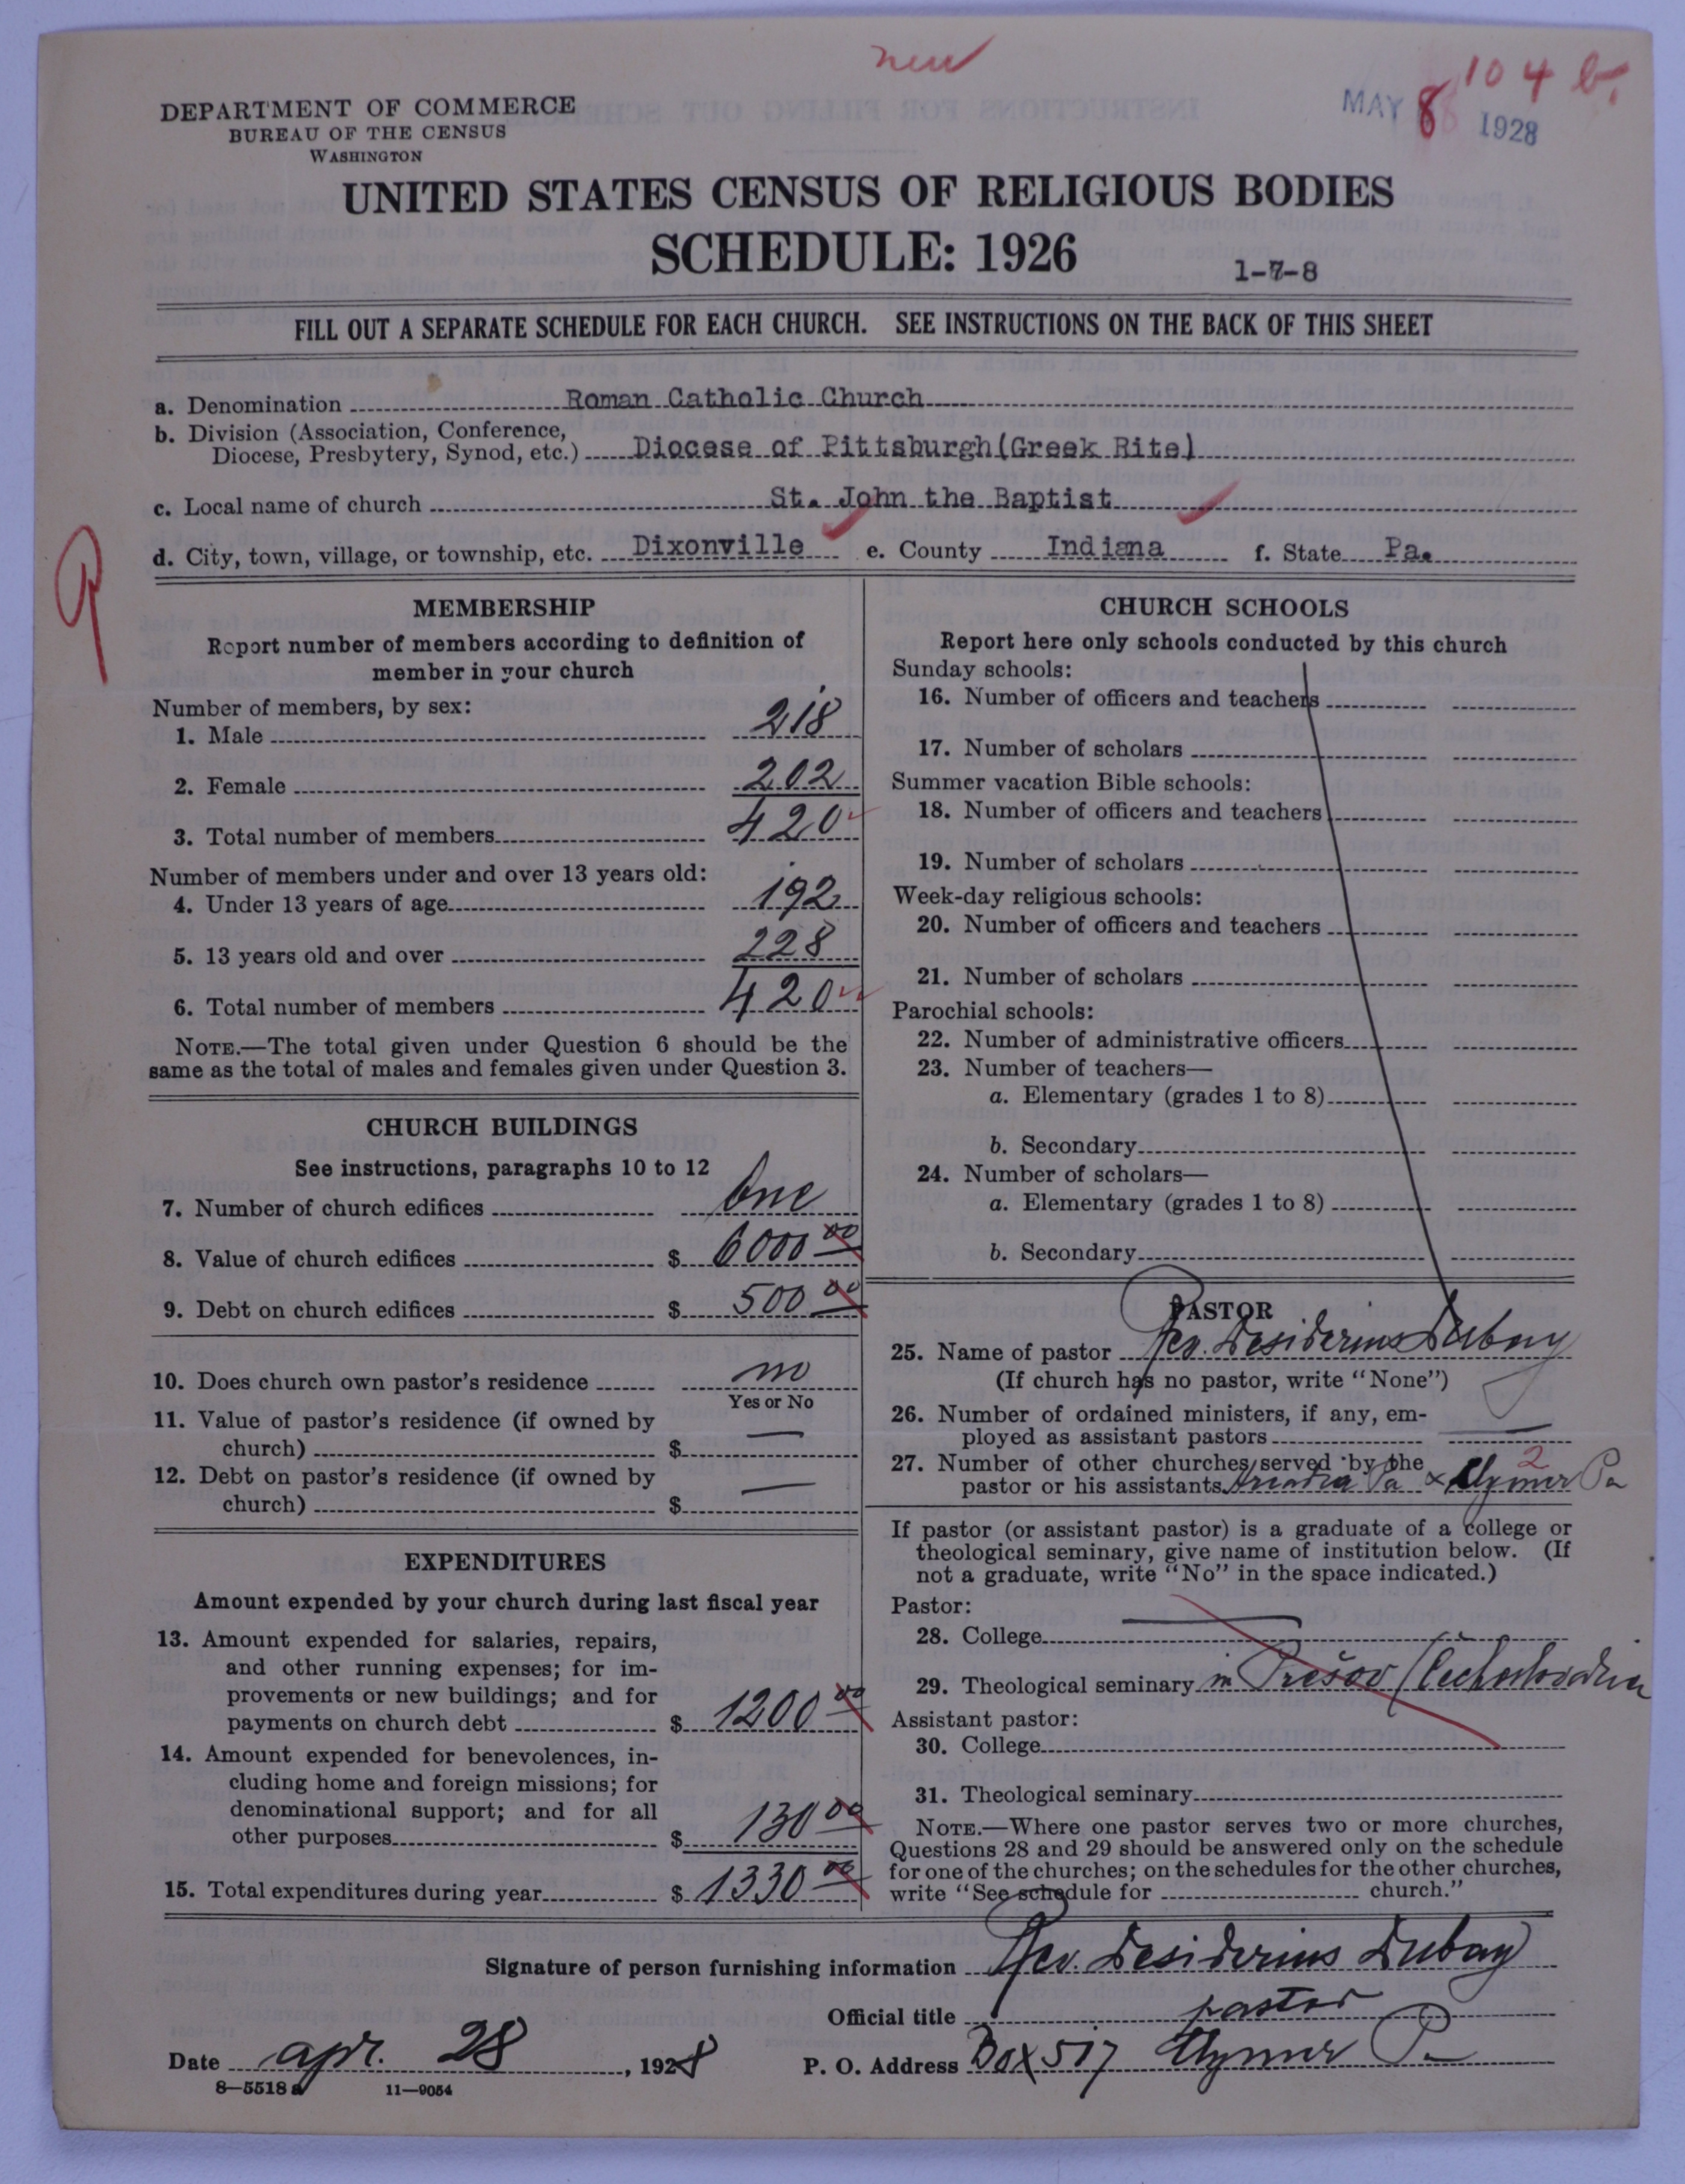 new
104 b.
MAY 8 1928
DEPARTMENT OF COMMERCE
BUREAU OF THE CENSUS
WASHINGTON
UNITED STATES CENSUS OF RELIGIOUS BODIES
SCHEDULE: 1926
1-7-8
FILL OUT A SEPARATE SCHEDULE FOR EACH CHURCH. SEE INSTRUCTIONS ON THE BACK OF THIS SHEET
a. Denomination Roman Catholic Church
b. Division (Association, Conference,
Diocese, Presbytery, Synod, etc.) Diocese of Pittsburgh(Greek Rite)
c. Local name of church St. John the Baptist
d. City, town, village, or township, etc. Dixonville e. County Indiana f. State Pa.
MEMBERSHIP
Report number of members according to definition of
member in your church
Number of members, by sex:
1. Male 218
2. Female 202
3. Total number of members 420
Number of members under and over 13 years old:
4. Under 13 years of age 192
5. 13 years old and over 228
6. Total number of members 420
NOTE.—The total given under Question 6 should be the
same as the total of males and females given under Question 3.
CHURCH BUILDINGS
See instructions, paragraphs 10 to 12
7. Number of church edifices One
8. Value of church edifices $ 6000 00
9. Debt on church edifices $ 500 00
10. Does church own pastor's residence no
Yes or No
11. Value of pastor's residence (if owned by
church) $ —
12. Debt on pastor's residence (if owned by
church) $ —
EXPENDITURES
Amount expended by your church during last fiscal year
13. Amount expended for salaries, repairs,
and other running expenses; for im-
provements or new buildings; and for
payments on church debt $ 1200 00
14. Amount expended for benevolences, in-
cluding home and foreign missions; for
denominational support; and for all
other purposes $ 130 00
15. Total expenditures during year $ 1330 00
CHURCH SCHOOLS
Report here only schools conducted by this church
Sunday schools:
16. Number of officers and teachers
17. Number of scholars
Summer vacation Bible schools:
18. Number of officers and teachers
19. Number of scholars
Week-day religious schools:
20. Number of officers and teachers
21. Number of scholars
Parochial schools:
22. Number of administrative officers
23. Number of teachers—
a. Elementary (grades 1 to 8)
b. Secondary
24. Number of scholars—
a. Elementary (grades 1 to 8)
b. Secondary
PASTOR
25. Name of pastor Rev. Desiderius Dubay
(If church has no pastor, write "None")
26. Number of ordained ministers, if any, em-
ployed as assistant pastors —
2
27. Number of other churches served by the
pastor or his assistants Arcadia Pa & Clymer Pa
If pastor (or assistant pastor) is a graduate of a college or
theological seminary, give name of institution below. (If
not a graduate, write "No" in the space indicated.)
Pastor:
28. College —
29. Theological seminary in Prešov
Assistant pastor:
30. College
31. Theological seminary
NOTE.—Where one pastor serves two or more churches,
Questions 28 and 29 should be answered only on the schedule
for one of the churches; on the schedules for the other churches,
write "See schedule for church."
Signature of person furnishing information Rev. Desiderius Dubay
Official title pastor
Date apr. 28, 1928 P. O. Address Box 517 Clymer Pa
8—5518 a 11—9054